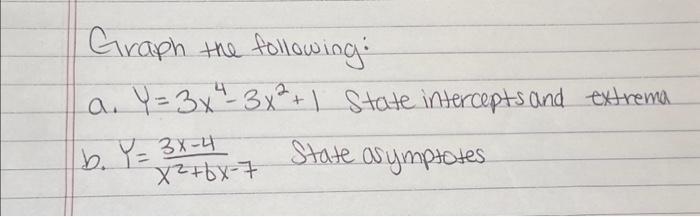 Graph the following:
a. Y = 3x⁴ - 3x² + 1 State intercepts and extrema
b. Y = (3x-4)/(x²+6x-7) State asymptotes